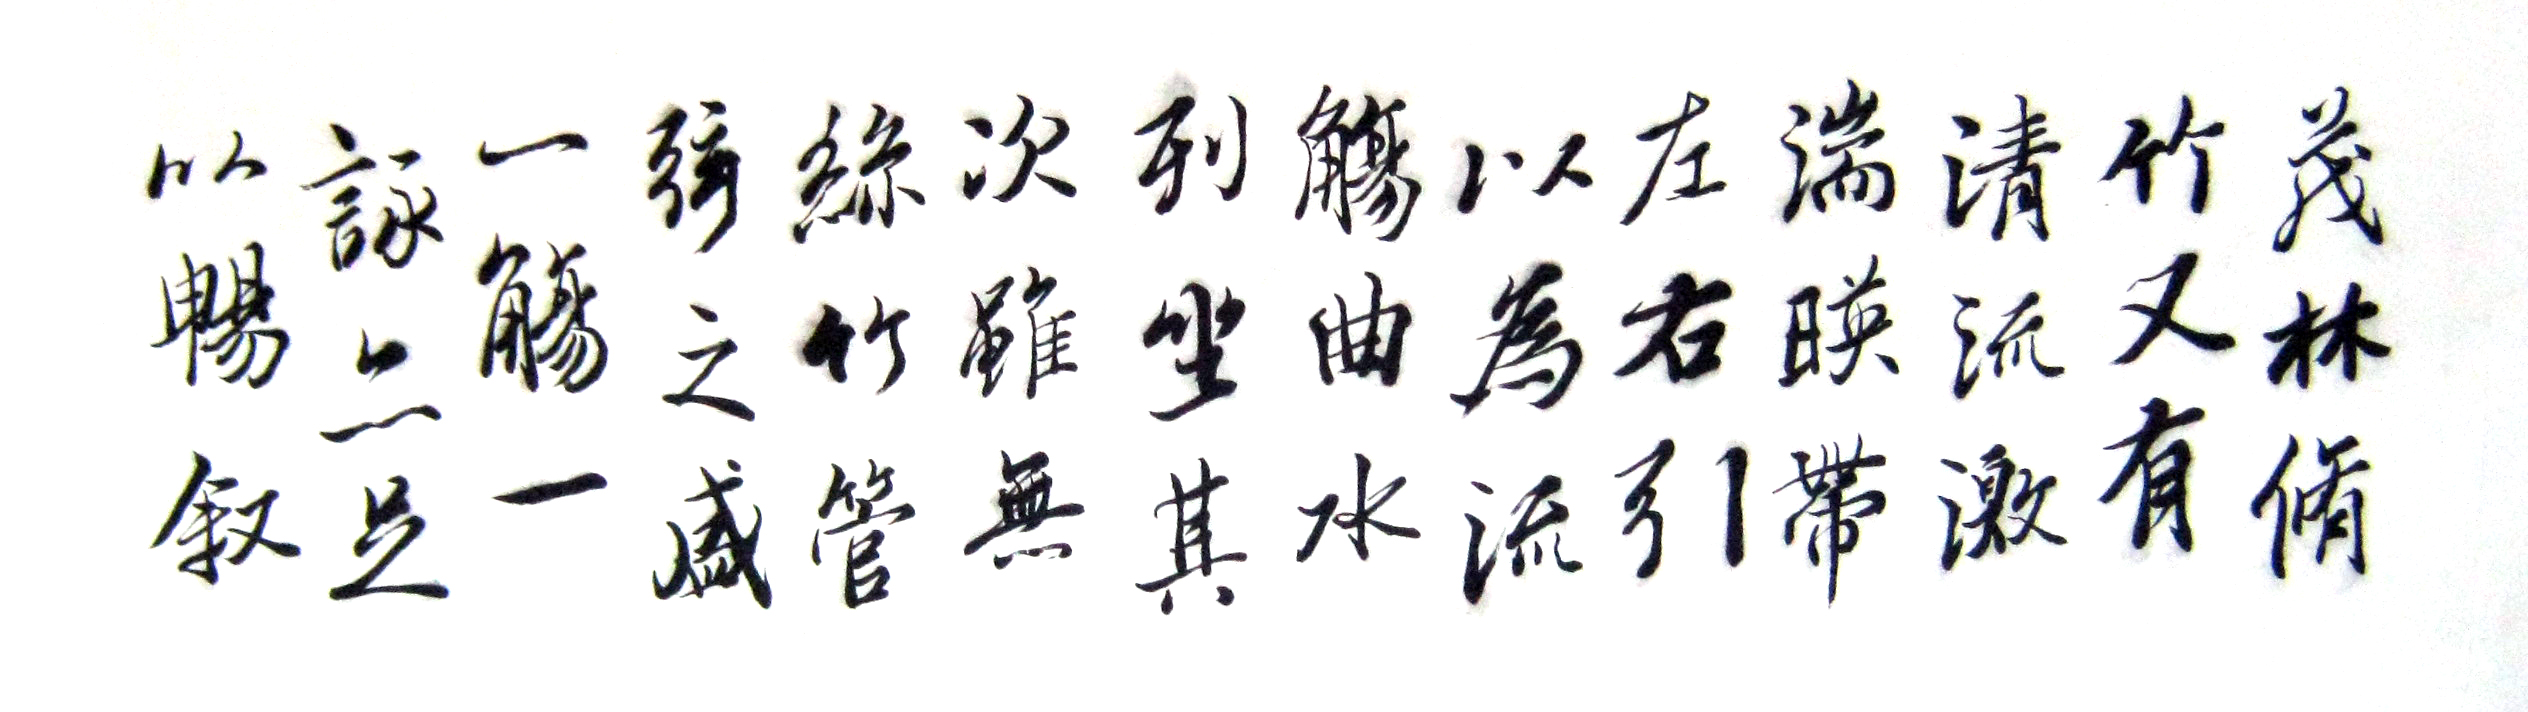 茂林脩
竹又有
清流激
湍暎帶
左右引
以為流
觴曲水
列坐其
次雖無
絲竹管
弦之盛
一觴一
詠亦足
以暢叙